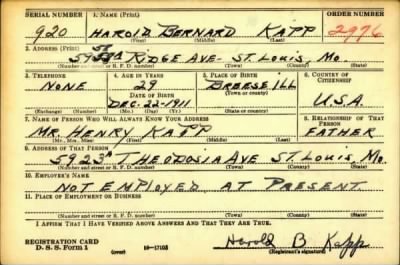 SERIAL NUMBER 1. NAME (Print) ORDER NUMBER
920 HAROLD BERNARD KAPP 2976
(First) (Middle) (Last)
2. ADDRESS (Print)
RIDGE AVE- ST. LOUIS, MO.
(Number and street or R. F. D. number) (Town) (County) (State)
3. TELEPHONE 4. AGE IN YEARS 5. PLACE OF BIRTH 6. COUNTRY OF CITIZENSHIP
NONE 29 BREESE ILL
DATE OF BIRTH (Town or county)
DEC-22-1911 U.S.A.
(Exchange) (Number) (Mo.) (Day) (Yr.) (State or country)
7. NAME OF PERSON WHO WILL ALWAYS KNOW YOUR ADDRESS 8. RELATIONSHIP OF THAT PERSON
MR. HENRY KAPP FATHER
(Mr., Mrs., Miss) (First) (Middle) (Last)
9. ADDRESS OF THAT PERSON
5923A THEODOSIA AVE ST. LOUIS, MO.
(Number and street or R. F. D. number) (Town) (County) (State)
10. EMPLOYER'S NAME
NOT EMPLOYED AT PRESENT
11. PLACE OF EMPLOYMENT OR BUSINESS
(Number and street or R. F. D. number) (Town) (County) (State)
I AFFIRM THAT I HAVE VERIFIED ABOVE ANSWERS AND THAT THEY ARE TRUE.
REGISTRATION CARD
D. S. S. Form 1 (over) 16-17105 Harold B Kapp
(Registrant's signature)